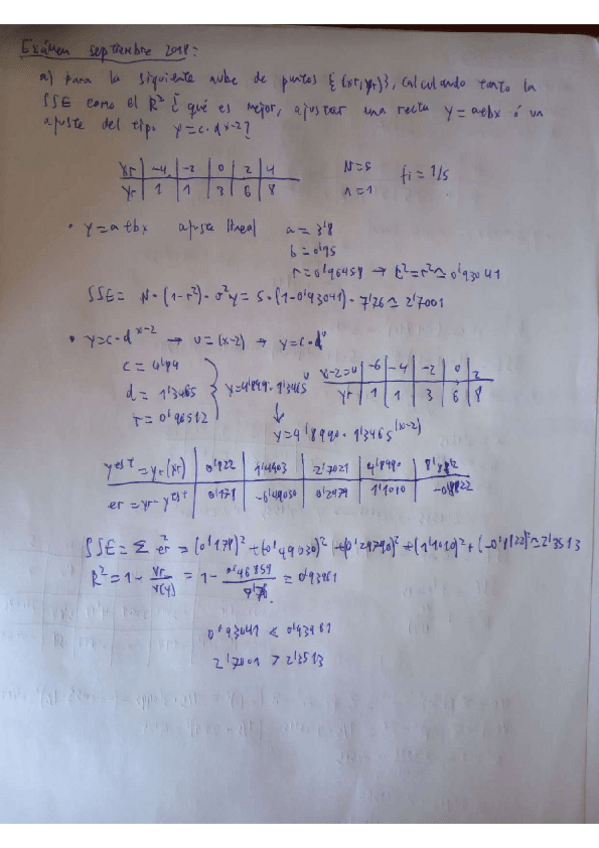 Exámen septiembre 2018:
a) Para la siguiente nube de puntos {(xr,yr)}, calculando tanto la
SSE como el R² ¿qué es mejor, ajustar una recta y=a+bx ó un
ajuste del tipo y=c·d^(x-2)?
xr | -4 | -2 | 0 | 2 | 4 N=5 fi=1/5
yr | 1 | 1 | 3 | 6 | 8 n=1
• y=a+bx ajuste lineal a=3'8
b=0'95
r=0'96458 → R²=r²≃0'93041
SSE= N·(1-r²)·σ²y=5·(1-0'93041)·7'76≃2'7001
• y=c·d^(x-2) → u=(x-2) → y=c·d^u
d=1'3465
r=0'96512
x-2=u | -6 | -4 | -2 | 0 | 2
yr | 1 | 1 | 3 | 6 | 8
y=4'8990·1'3465^(x-2)
y^est=yr(xr) | 0'822 | 1'4903 | 2'7021 | 4'8990
er=yr-y^est | 0'178 | 0'2979 | 1'1010
SSE=Σ er²=(0'178)²+(0'49030)²+(0'29790)²+(1'1010)²+(-0'8822)²≃2'3513
R²=1- =1- ≃0'93961
0'93041 < 0'93961
2'7001 > 2'3513